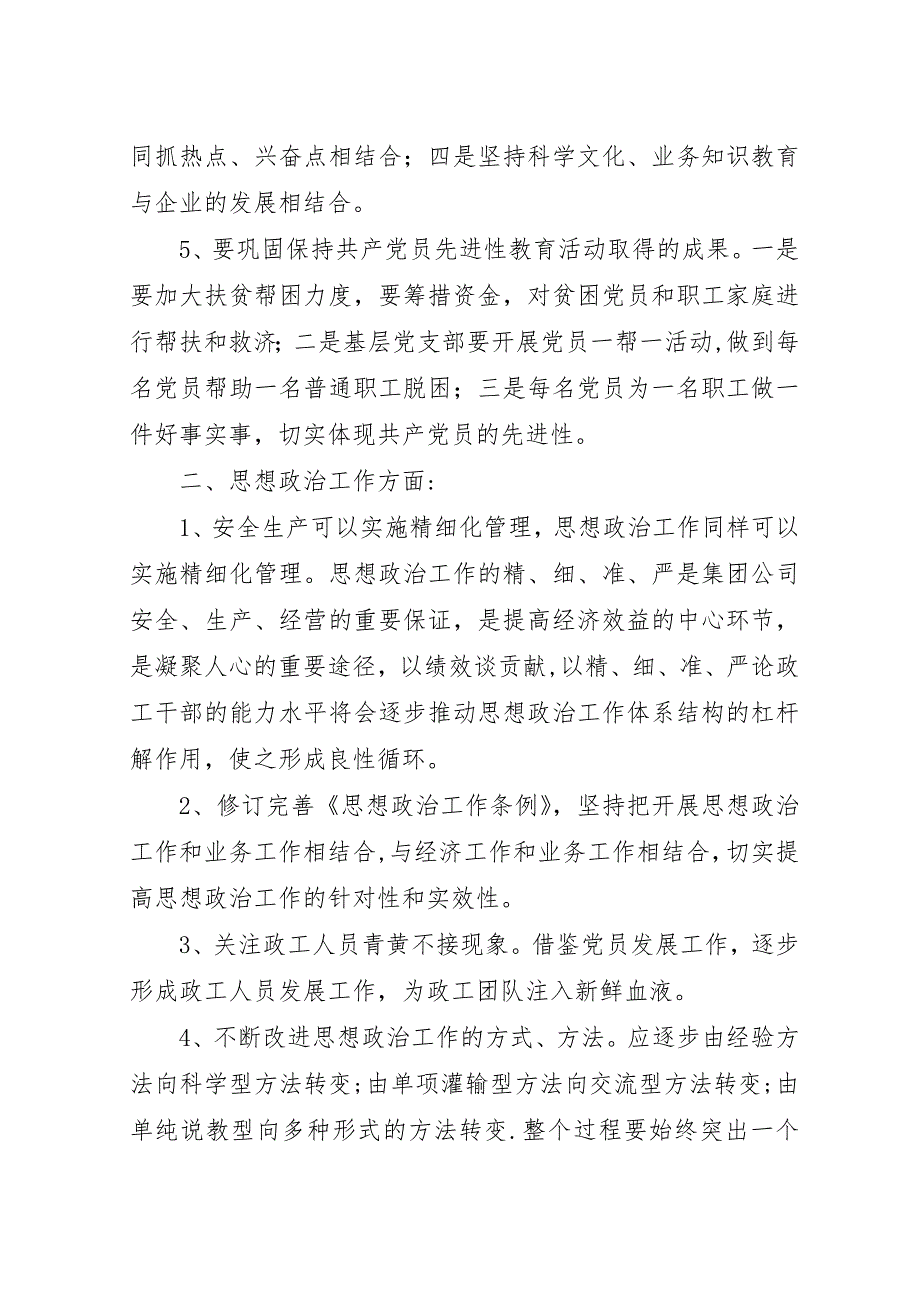 同抓热点、兴奋点相结合；四是坚持科学文化、业务知识教育
与企业的发展相结合。
5、要巩固保持共产党员先进性教育活动取得的成果。一是
要加大扶贫帮困力度，要筹措资金，对贫困党员和职工家庭进
行帮扶和救济；二是基层党支部要开展党员一帮一活动,做到每
名党员帮助一名普通职工脱困；三是每名党员为一名职工做一
件好事实事，切实体现共产党员的先进性。
二、思想政治工作方面:
1、安全生产可以实施精细化管理，思想政治工作同样可以
实施精细化管理。思想政治工作的精、细、准、严是集团公司
安全、生产、经营的重要保证，是提高经济效益的中心环节，
是凝聚人心的重要途径，以绩效谈贡献,以精、细、准、严论政
工干部的能力水平将会逐步推动思想政治工作体系结构的杠杆
解作用，使之形成良性循环。
2、修订完善《思想政治工作条例》，坚持把开展思想政治
工作和业务工作相结合,与经济工作和业务工作相结合，切实提
高思想政治工作的针对性和实效性。
3、关注政工人员青黄不接现象。借鉴党员发展工作，逐步
形成政工人员发展工作，为政工团队注入新鲜血液。
4、不断改进思想政治工作的方式、方法。应逐步由经验方
法向科学型方法转变;由单项灌输型方法向交流型方法转变;由
单纯说教型向多种形式的方法转变.整个过程要始终突出一个